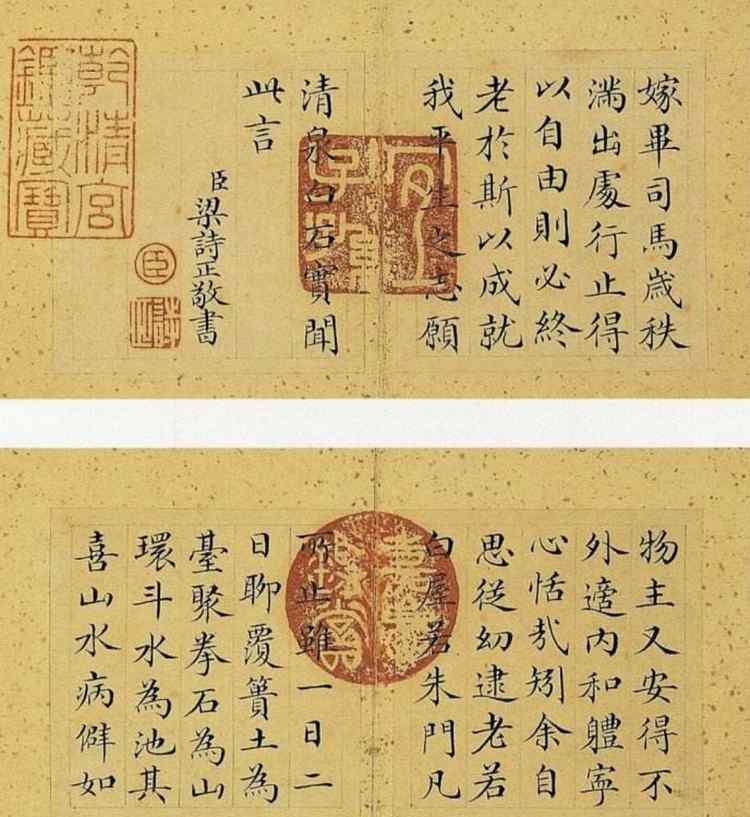 嫁畢司馬歲秩
滿出處行止得
以自由則必終
老於斯以成就
我平生之志願
清泉白石實聞
此言
臣梁詩正敬書
乾清宮
鑑藏寶
臣
物主又安得不
外適內和體寧
心恬哉矧余自
思從幼逮老若
白屋若朱門凡
所止雖一日二
日聊覆簣土為
臺聚拳石為山
環斗水為池其
喜山水病僻如